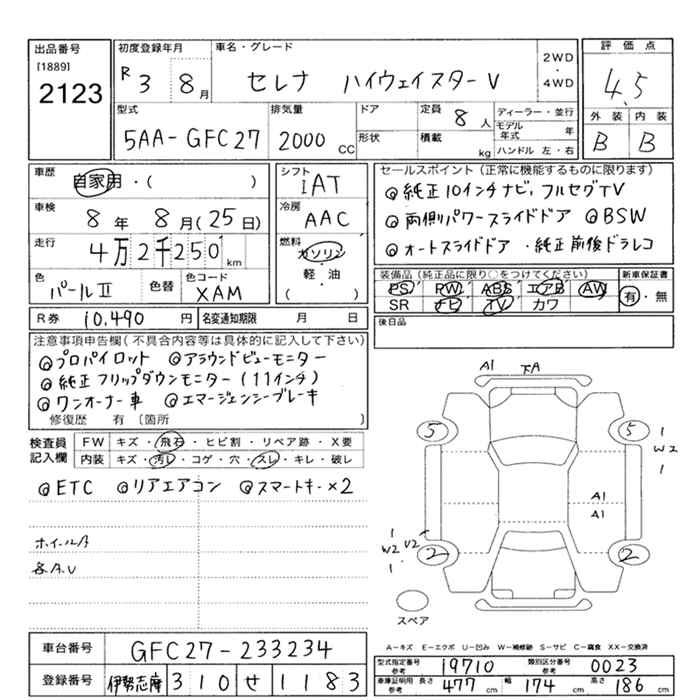 出品番号
[1889]
2123
初度登録年月
R 3 8月
車名・グレード
セレナ ハイウェイスターV
2WD
・
4WD
評価点
4.5
外装 内装
B B
型式
5AA-GFC27
排気量
2000 CC
ドア
形状
定員
8人
積載
kg
ディーラー・並行
モデル年式 年
ハンドル 左・右
車歴
自家用・( )
車検
8年 8月(25日)
走行
4万2千250km
色
パールⅡ
色替
色コード
XAM
シフト
IAT
冷房
AAC
燃料
ガソリン
軽・油
( )
セールスポイント(正常に機能するものに限ります)
◎純正10インチナビ、フルセグTV
◎両側パワースライドドア ◎BSW
◎オートスライドドア ・純正前後ドラレコ
装備品(純正品に限り○をつけてください)
PS PW ABS エアB AW
SR ナビ TV カワ
新車保証書
有・無
後日品
R券 10,490円
名変通知期限 月 日
注意事項申告欄(不具合内容等は具体的に記入して下さい)
◎プロパイロット ◎アラウンドビューモニター
◎純正フリップダウンモニター(11インチ)
◎ワンオーナー車 ◎エマージェンシーブレーキ
修復歴 有 〔箇所 〕
検査員記入欄
FW キズ・飛石・ヒビ割・リペア跡・X要
内装 キズ・汚レ・コゲ・穴・スレ・キレ・破レ
◎ETC ◎リアエアコン ◎スマートキー×2
ホイールカ
各A.U
A1 下A
5 5
1
W2
1
A1
A1
1
W2 U2
1
2 2
スペア
A-キズ E-エクボ U-凹み W-補修跡 S-サビ C-腐食 XX-交換済
車台番号
GFC27-233234
登録番号
伊勢志摩 310 せ 1183
型式指定番号 参考
19710
類別区分番号 参考
0023
車庫証明用 参考
長さ 477cm 幅 174cm 高さ 186cm